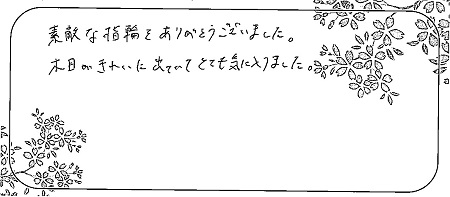 素敵な指輪をありがとうございました。
木目がきれいに出ていてとても気に入りました。